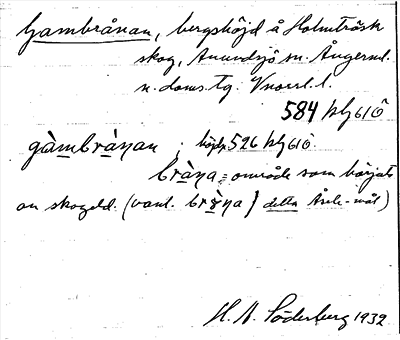 Gambrånan, bergshöjd å Holmträsk
skog, Anundsjö sn. Ångerml.
n. doms. tg. Vnorrl. l.
584 hlg 61Ö
gàmbràṇan ; höjdp 526 hlg 61Ö.
bràṇa = område som härjats
av skogeld. (vanl. ) detta Åsele-mål)
H. N. Söderberg 1932